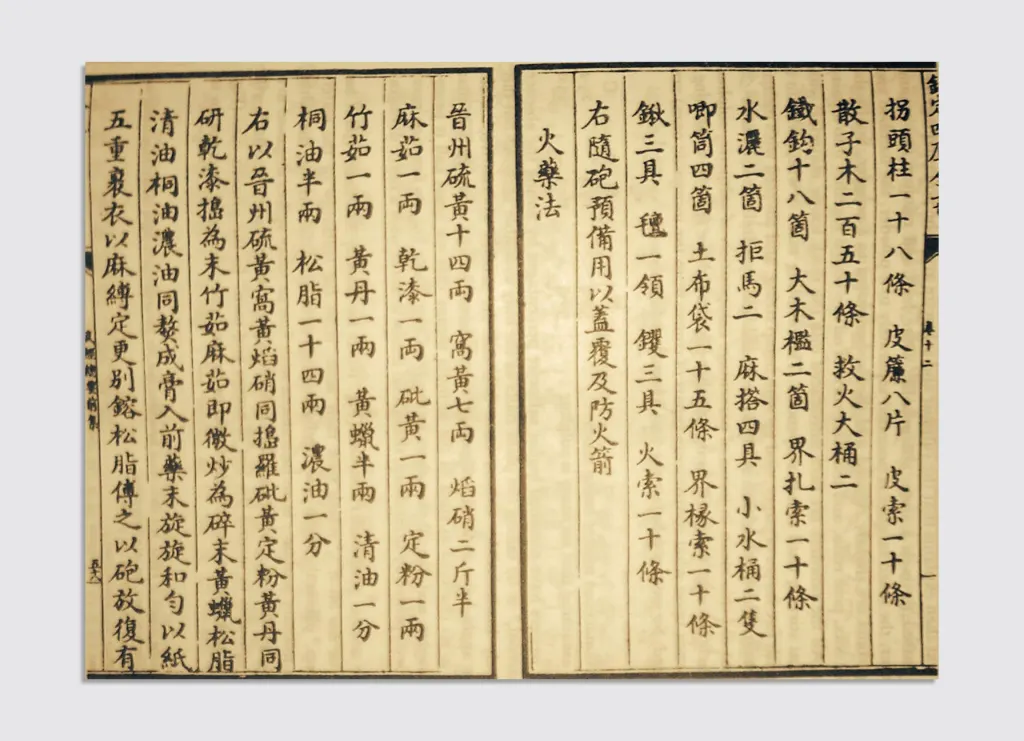 拐頭柱一十八條　皮簾八片　皮索一十條
散子木二百五十條　救火大桶二
鐵鈎十八箇　大木檻二箇　界扎索一十條
水濃二箇　拒馬二　麻搭四具　小水桶二隻
唧筒四箇　土布袋一十五條　界椽索一十條
鍬三具　氊一領　钁三具　火索一十條
右隨砲預備用以蓋覆及防火箭
火藥法
晉州硫黃十四兩　窩黃七兩　焰硝二斤半
麻茹一兩　乾漆一兩　砒黃一兩　定粉一兩
竹茹一兩　黃丹一兩　黃蠟半兩　清油一分
桐油半兩　松脂一十四兩　濃油一分
右以晉州硫黃窩黃焰硝同搗羅砒黃定粉黃丹同
研乾漆搗為末竹茹麻茹即微炒為碎末黃蠟松脂
清油桐油濃油同熬成膏入前藥末旋旋和勻以紙
五重裹衣以麻縛定更別鎔松脂傅之以砲放復有